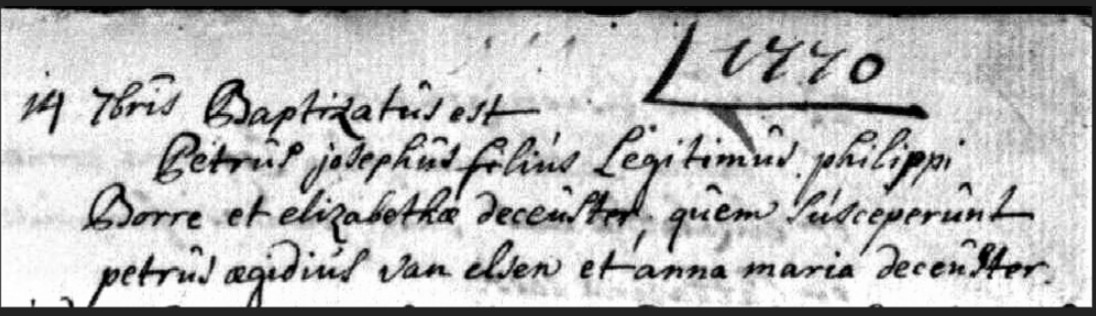 1770
14 7bris Baptizatus est
Petrus josephus filius Legitimus philippi
Borre et elizabethæ deceuster, quem susceperunt
petrus ægidius van elsen et anna maria deceuster.